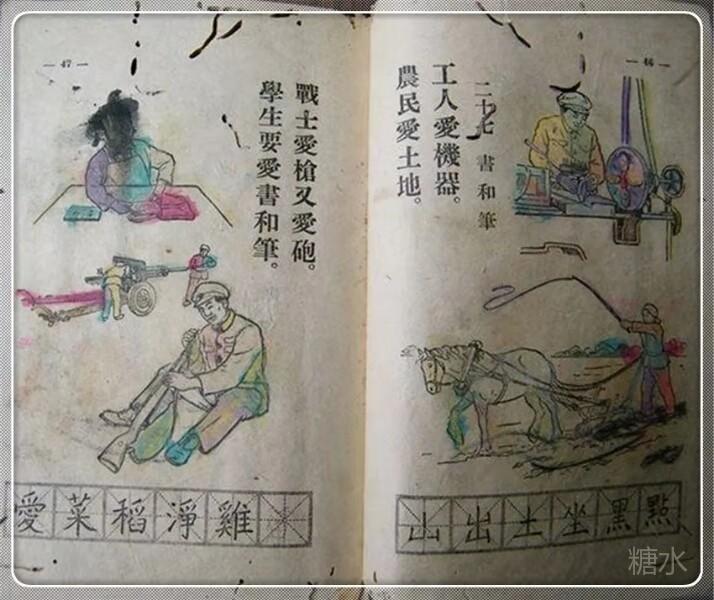 — 46 —
二十七 書和筆
工人愛機器。
農民愛土地。
山出土坐黑點
— 47 —
戰士愛槍又愛砲。
學生要愛書和筆。
愛菜稻淨雞
糖水